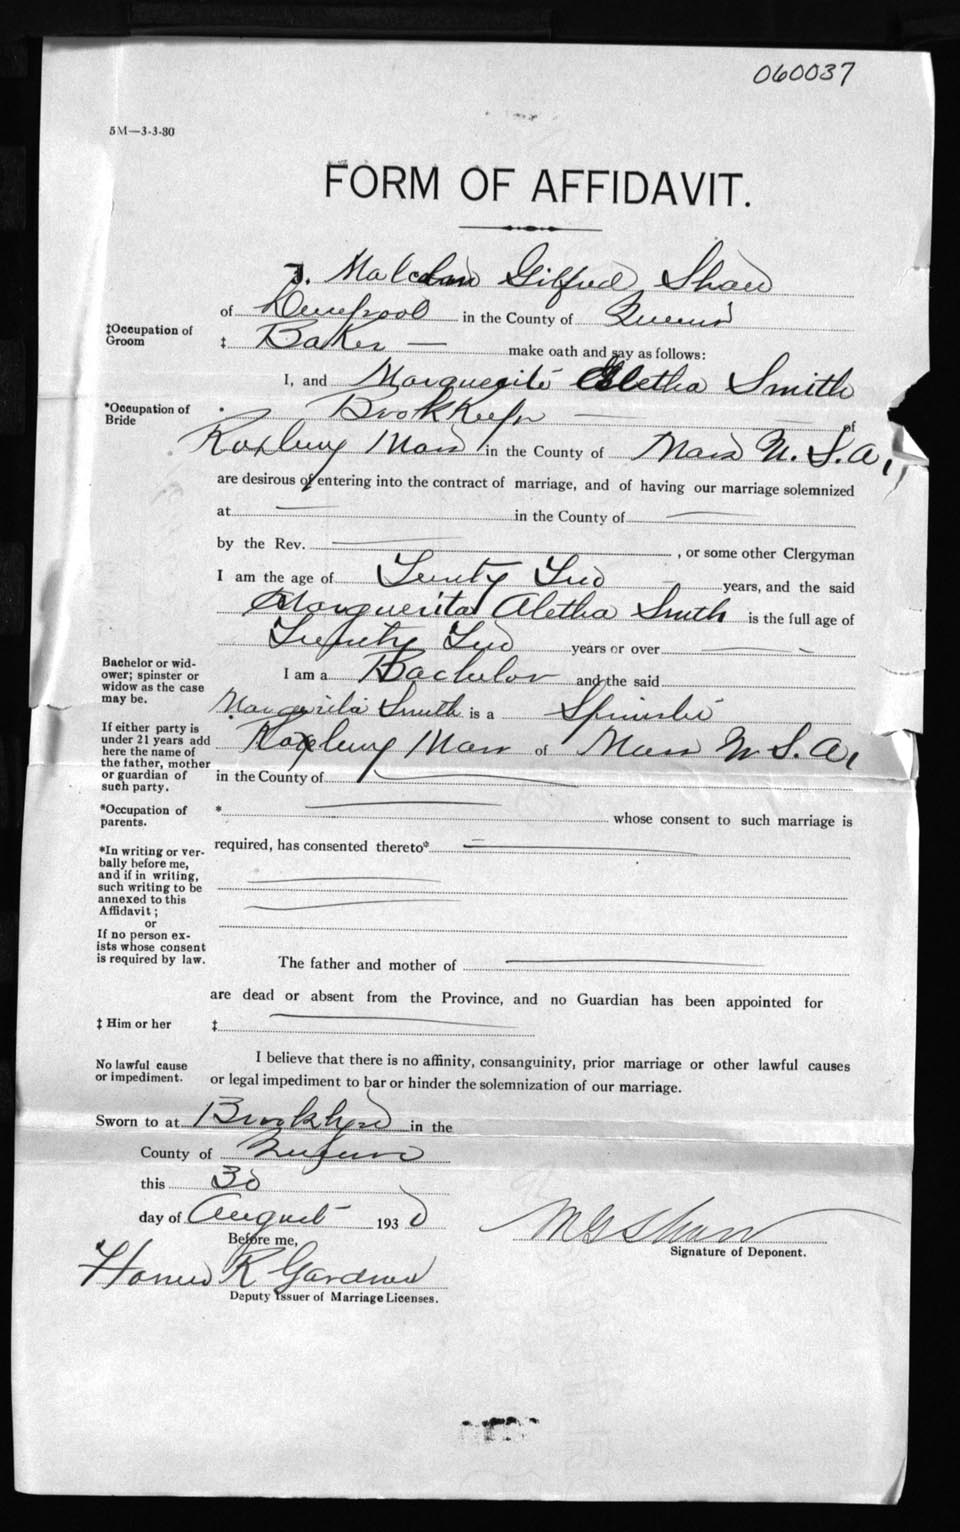 060037
5M—3-3-30
FORM OF AFFIDAVIT.
I, Malcolm Gilfred Shaw
of Liverpool in the County of Queens
‡Occupation of Groom ‡ Baker make oath and say as follows:
I, and Marguerite Aletha Smith
*Occupation of Bride * Book Keeper of
Roxbury Mass in the County of Mass U. S. A,
are desirous of entering into the contract of marriage, and of having our marriage solemnized
at in the County of
by the Rev. , or some other Clergyman
I am the age of Twenty Two years, and the said
Marguerita Aletha Smith is the full age of
Twenty Two years or over
Bachelor or widower; spinster or widow as the case may be. I am a Bachelor and the said
Marguerita Smith is a Spinster
If either party is under 21 years add here the name of the father, mother or guardian of such party. Roxbury Mass of Mass U S. A,
in the County of
*Occupation of parents. * whose consent to such marriage is
*In writing or verbally before me, and if in writing, such writing to be annexed to this Affidavit; or If no person exists whose consent is required by law. required, has consented thereto*
The father and mother of
are dead or absent from the Province, and no Guardian has been appointed for
‡ Him or her ‡
No lawful cause or impediment. I believe that there is no affinity, consanguinity, prior marriage or other lawful causes
or legal impediment to bar or hinder the solemnization of our marriage.
Sworn to at Brooklyn in the
County of Queens
this 30
day of August 1930
Before me, M G Shaw
Signature of Deponent.
Homer R Gardner
Deputy Issuer of Marriage Licenses.